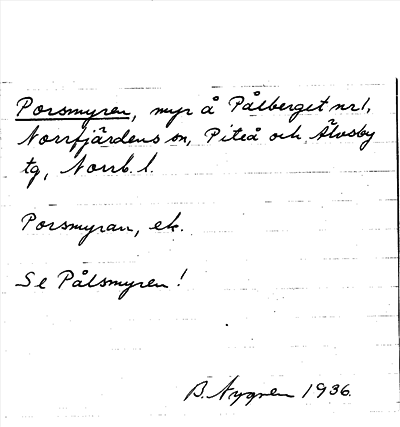 Porsmyren, myr å Pålberget nr 1,
Norrfjärdens sn, Piteå och Älvsby
tg, Norrb. l.
Porsmyran, ek.
Se Pålsmyren!
B. Nygren 1936.